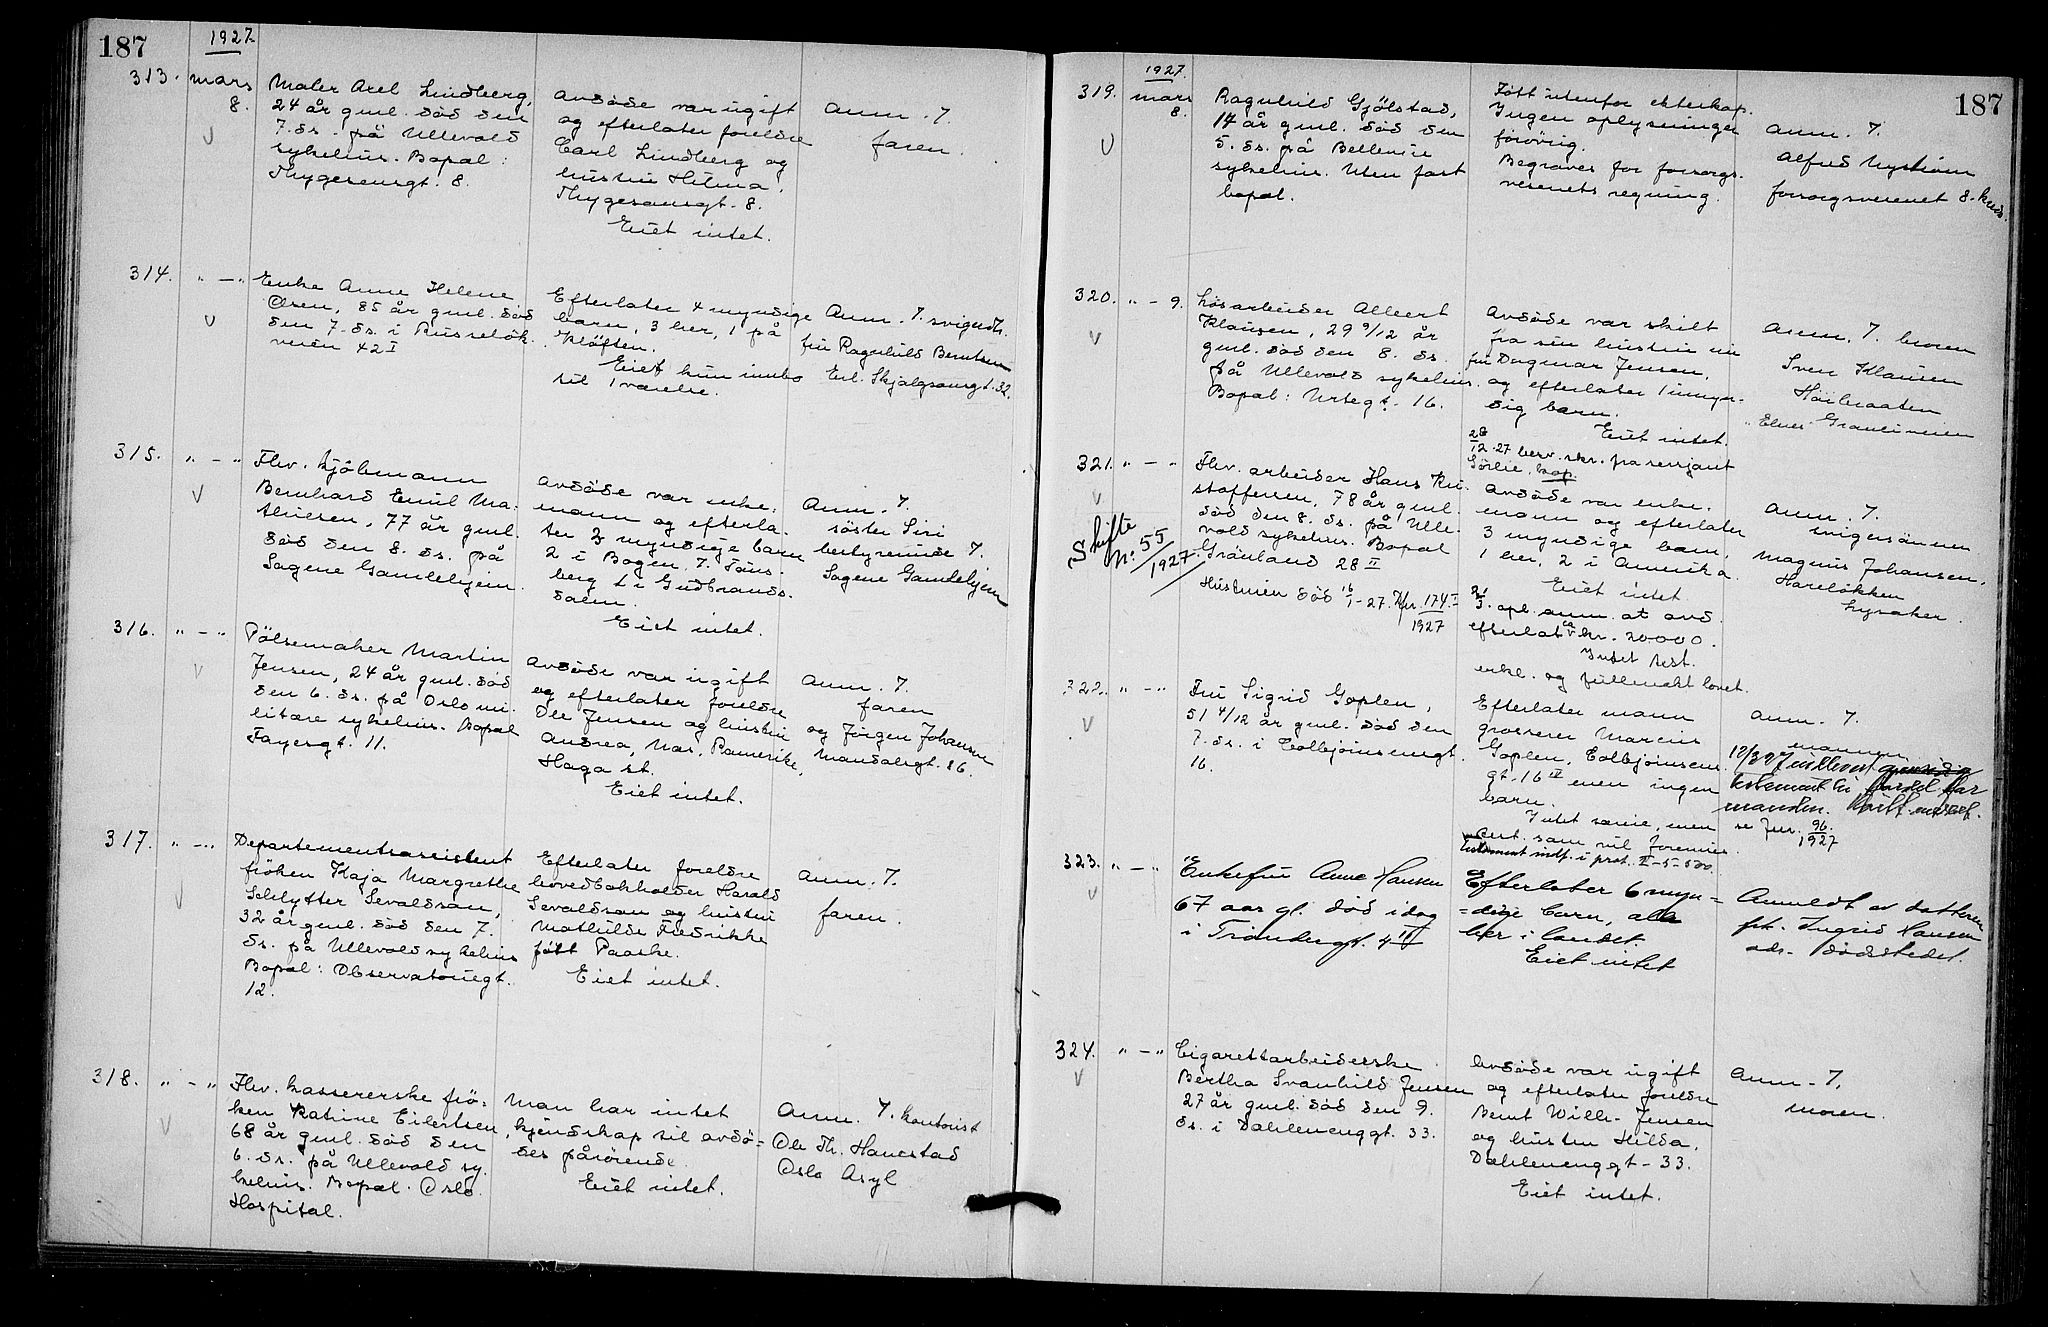 187
1927
313. mars
8.
Maler Axel Lindberg,
24 år gml. död den
7. ds. på Ullevold
sykehus. Bopæl:
Thygesensgt. 8.
Avdöde var ugift
og efterlater foreldre
Carl Lindberg og
hustru Hilma,
Thygesensgt. 8.
Eiet intet.
Anm. 7.
faren.
314. " — "
Enke Anne Helene
Olsen, 85 år gml. död
den 7. ds. i Russelök.
veien 42 I
Efterlater 4 myndige
barn, 3 her, 1 på
Klöften.
Eiet kun innbo
til 1 værelse.
Anm. 7. svigerdtr.
fru Ragnhild Berntsen
Erl. Skjalgsonsgt. 32.
315. " — "
Fhv. kjöbmann
Bernhard Emil Ma-
thiesen, 77 år gml.
död den 8. ds. på
Sagene Gamlehjem.
Avdöde var enke-
mann og efterla-
ter 3 myndige barn
2 i Bogen, 7. Töns-
berg 1 i Gudbrands-
dalen.
Eiet intet.
Anm. 7.
söster Siri
bestyrerinde 7.
Sagene Gamlehjem
316. " — "
Pölsemaker Martin
Jensen, 24 år gml. död
den 6. ds. på Oslo mi-
litære sykehus. Bopæl
Fayesgt. 11.
Avdöde var ugift
og efterlater foreldre
Ole Jensen og hustru
Andrea, Nes, Romerike,
Haga st.
Eiet intet.
Anm. 7.
faren
og Jörgen Johansen
Mandalsgt. 16.
317. " — "
Departementsassistent
fröken Kaja Margrethe
Schlytter Sevaldson,
32 år gml. död den 7.
ds. på Ullevold sykehus
Bopæl: Observatoriegt.
12.
Efterlater foreldre
hovedbokholder Harald
Sevaldson og hustru
Mathilde Fredrikke
född Paaske.
Eiet intet.
Anm. 7.
faren.
318. " — "
Fhv. kassererske frö-
ken Katrine Eilertsen,
68 år gml. död den
6. ds. på Ullevold sy-
kehus. Bopæl. Oslo
Hospital.
Man har intet
kjendskap til avdö-
des pårörende.
Eiet intet.
Anm. 7. kontorist
Ole Th. Hanestad
Oslo Asyl
187
1927.
319. mars
8.
Ragnhild Gjölstad,
14 år gml. död den
5. ds. på Bellevue
sykehus. Uten fast
bopæl.
Född utenfor ekteskap.
Ingen oplysninger
forövrig.
Begraves for forsorgs-
vesenets regning.
Anm. 7.
Alfred Nyström
forsorgsvesenet 8. kreds.
320. " — 9.
Lösarbeider Albert
Klausen, 29 9/12 år
gml. död den 8. ds.
på Ullevold sykehus.
Bopæl: Urtegt. 16.
Avdöde var skilt
fra sin hustru nu
fru Dagmar Jensen,
og efterlater 1 umyn-
dig barn.
Eiet intet.
28/12-27 berv. skr. fra sersjant
Sörlie, kop
Anm. 7. broren
Sven Klausen
Höibraaten
Granliveien
321. " — "
Skifte
Nº 55/1927.
Fhv. arbeider Hans Kri-
stoffersen, 78 år gml.
död den 8. ds. på Ulle-
vold sykehus. Bopæl
Grönland 28 II
Hustruen död 16/1-27. Jfr. 174.I
1927
Avdöde var enke-
mann og efterlater
3 myndige barn,
1 her, 2 i Amerika.
Eiet intet.
21/3. opl. anm. at avd.
efterlot ca kr. 20000.
Intet test.
erkl. og fullmakt lovet.
Anm. 7.
svigersönnen
Magnus Johansen,
Hareløkken
Lysaker.
322. " — "
Fru Sigrid Goplen,
51 4/12 år gml. död den
7. ds. i Colbjörnsensgt.
16.
Efterlater mann
grosserer Marcus
Goplen, Colbjörnsens-
gt. 16 II men ingen
barn.
Intet særeie, men
test. som vil fremvises.
Testament indf. i prot. II-5-500.
Anm. 7.
mannen
12/3 27 innlevert
testament til fordel for
manden.
se Jnr. 96.
1927
323. " — "
Enkefru Anne Hansen
67 aar gl. död idag
i Trondergt. 4 II
Efterlater 6 myn=
=dige barn, alle
her i landet.
Eiet intet
Anmeldt av datteren
frk. Ingrid Hansen
adr. Dödsstedet.
324. " — "
Cigarettarbeiderske
Bertha Svanhild Jensen
27 år gml. död den 9.
ds. i Dahlenenggt. 33.
Avdöde var ugift
og efterlater foreldre
Bernt Wilh. Jensen
og hustru Hilda,
Dahlenenggt-33.
Eiet intet.
Anm. 7.
moren.